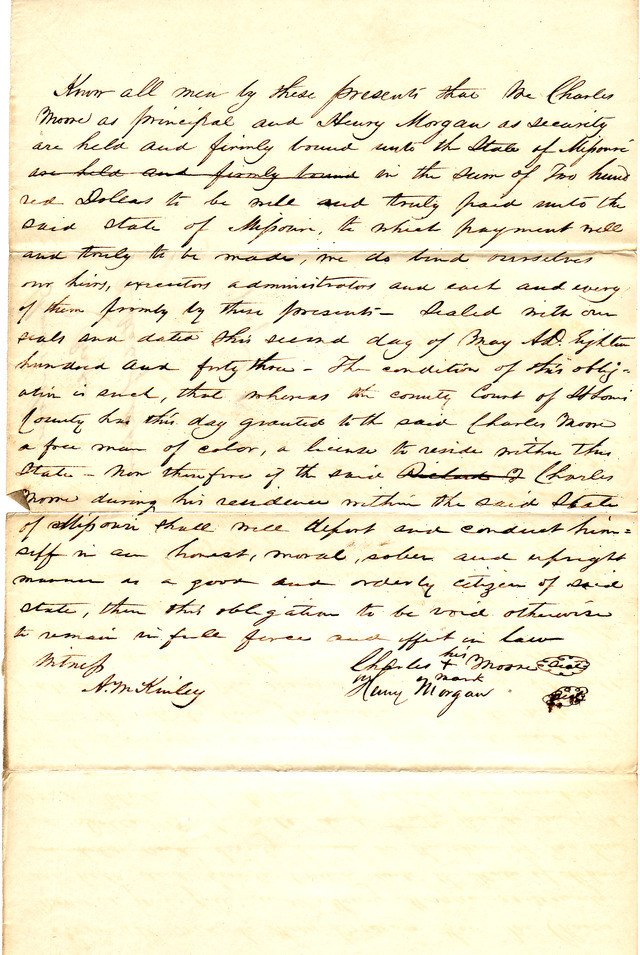 Know all men by these presents that We Charles
Moore as principal and Henry Morgan as security
are held and firmly bound unto the State of Missouri
are held and firmly bound in the sum of Two hund
red Dolars to be well and truly paid unto the
said state of Missouri, to which payment well
and truly to be made, we do bind ourselves
our heirs, executors administrators and each and every
of them firmly by these presents – Sealed with our
seals and dated this second day of May A.D. Eighteen
hundred and forty three – The condition of this oblig=
ation is such, that whereas the county Court of St Louis
County has this day granted to the said Charles Moore
a free man of color, a license to reside within this
State – Now therefore if the said Charles
Moore during his residence within the said State
of Missouri shall well deport and conduct him=
self in an honest, moral, sober and upright
manner as a good and orderly citizen of said
state, then this obligation to be void otherwise
to remain in full force and effect in law
Witness
A. McKinley
his
Charles + Moore Seal
mark
Henry Morgan Seal